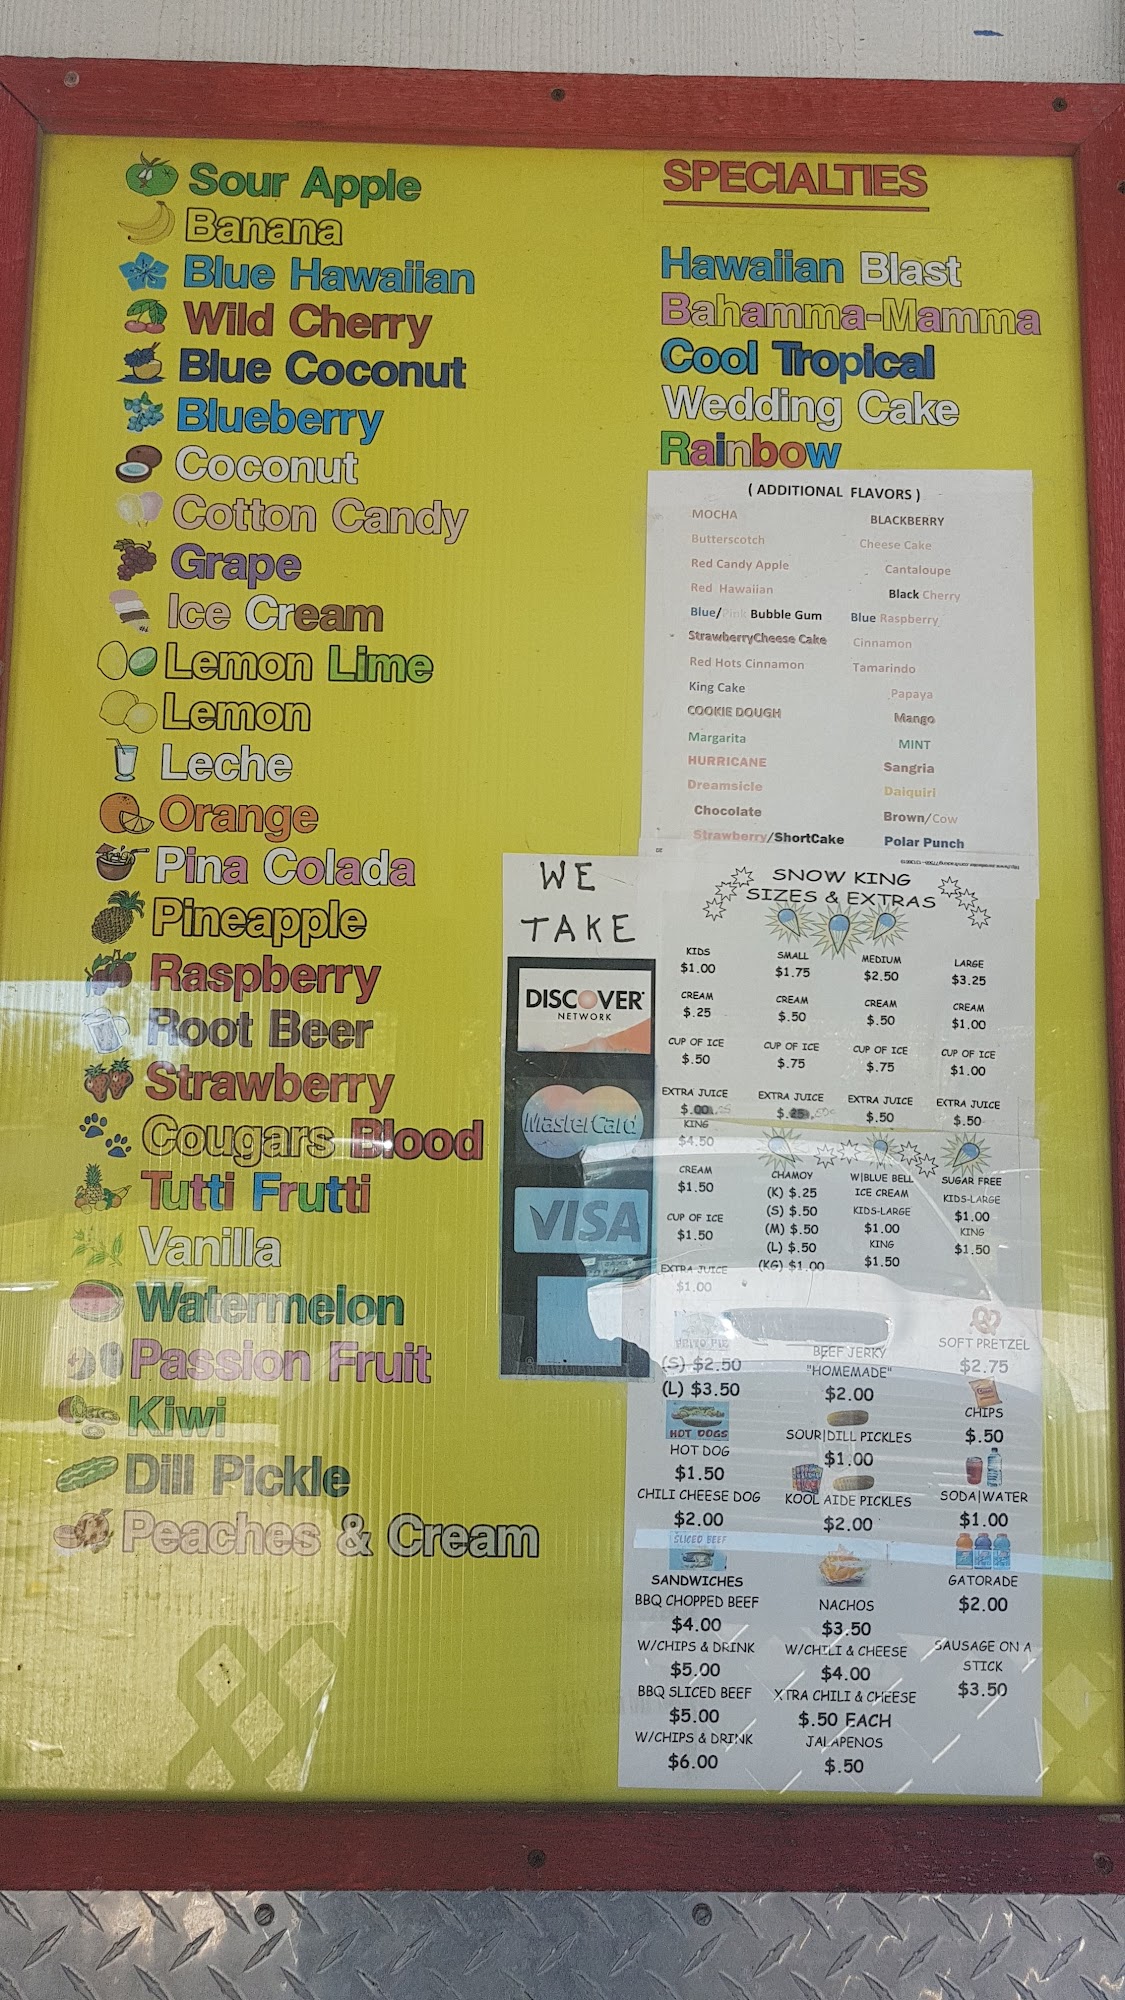 Sour Apple
Banana
Blue Hawaiian
Wild Cherry
Blue Coconut
Blueberry
Coconut
Cotton Candy
Grape
Ice Cream
Lemon Lime
Lemon
Leche
Orange
Pina Colada
Pineapple
Raspberry
Root Beer
Strawberry
Cougars Blood
Tutti Frutti
Vanilla
Watermelon
Passion Fruit
Kiwi
Dill Pickle
Peaches & Cream
SPECIALTIES
Hawaiian Blast
Bahamma-Mamma
Cool Tropical
Wedding Cake
Rainbow
( ADDITIONAL FLAVORS )
MOCHA
Butterscotch
Red Candy Apple
Red Hawaiian
Blue/Pink Bubble Gum
StrawberryCheese Cake
Red Hots Cinnamon
King Cake
COOKIE DOUGH
Margarita
HURRICANE
Dreamsicle
Chocolate
Strawberry/ShortCake
BLACKBERRY
Cheese Cake
Cantaloupe
Black Cherry
Blue Raspberry
Cinnamon
Tamarindo
Papaya
Mango
MINT
Sangria
Daiquiri
Brown/Cow
Polar Punch
WE
TAKE
DISCOVER
NETWORK
MasterCard
VISA
SNOW KING
SIZES & EXTRAS
KIDS
$1.00
CREAM
$.25
CUP OF ICE
$.50
EXTRA JUICE
KING
$4.50
CREAM
$1.50
CUP OF ICE
$1.50
EXTRA JUICE
$1.00
SMALL
$1.75
CREAM
$.50
CUP OF ICE
$.75
EXTRA JUICE
$.25
CHAMOY
(K) $.25
(S) $.50
(M) $.50
(L) $.50
(KG) $1.00
MEDIUM
$2.50
CREAM
$.50
CUP OF ICE
$.75
EXTRA JUICE
$.50
W|BLUE BELL
ICE CREAM
KIDS-LARGE
$1.00
KING
$1.50
LARGE
$3.25
CREAM
$1.00
CUP OF ICE
$1.00
EXTRA JUICE
$.50
SUGAR FREE
KIDS-LARGE
$1.00
KING
$1.50
(S) $2.50
(L) $3.50
HOT DOGS
HOT DOG
$1.50
CHILI CHEESE DOG
$2.00
SLICED BEEF
SANDWICHES
BBQ CHOPPED BEEF
$4.00
W/CHIPS & DRINK
$5.00
BBQ SLICED BEEF
$5.00
W/CHIPS & DRINK
$6.00
BEEF JERKY
"HOMEMADE"
$2.00
SOUR|DILL PICKLES
$1.00
KOOL AIDE PICKLES
$2.00
NACHOS
$3.50
W/CHILI & CHEESE
$4.00
XTRA CHILI & CHEESE
$.50 EACH
JALAPENOS
$.50
SOFT PRETZEL
$2.75
CHIPS
$.50
SODA|WATER
$1.00
GATORADE
$2.00
SAUSAGE ON A
STICK
$3.50